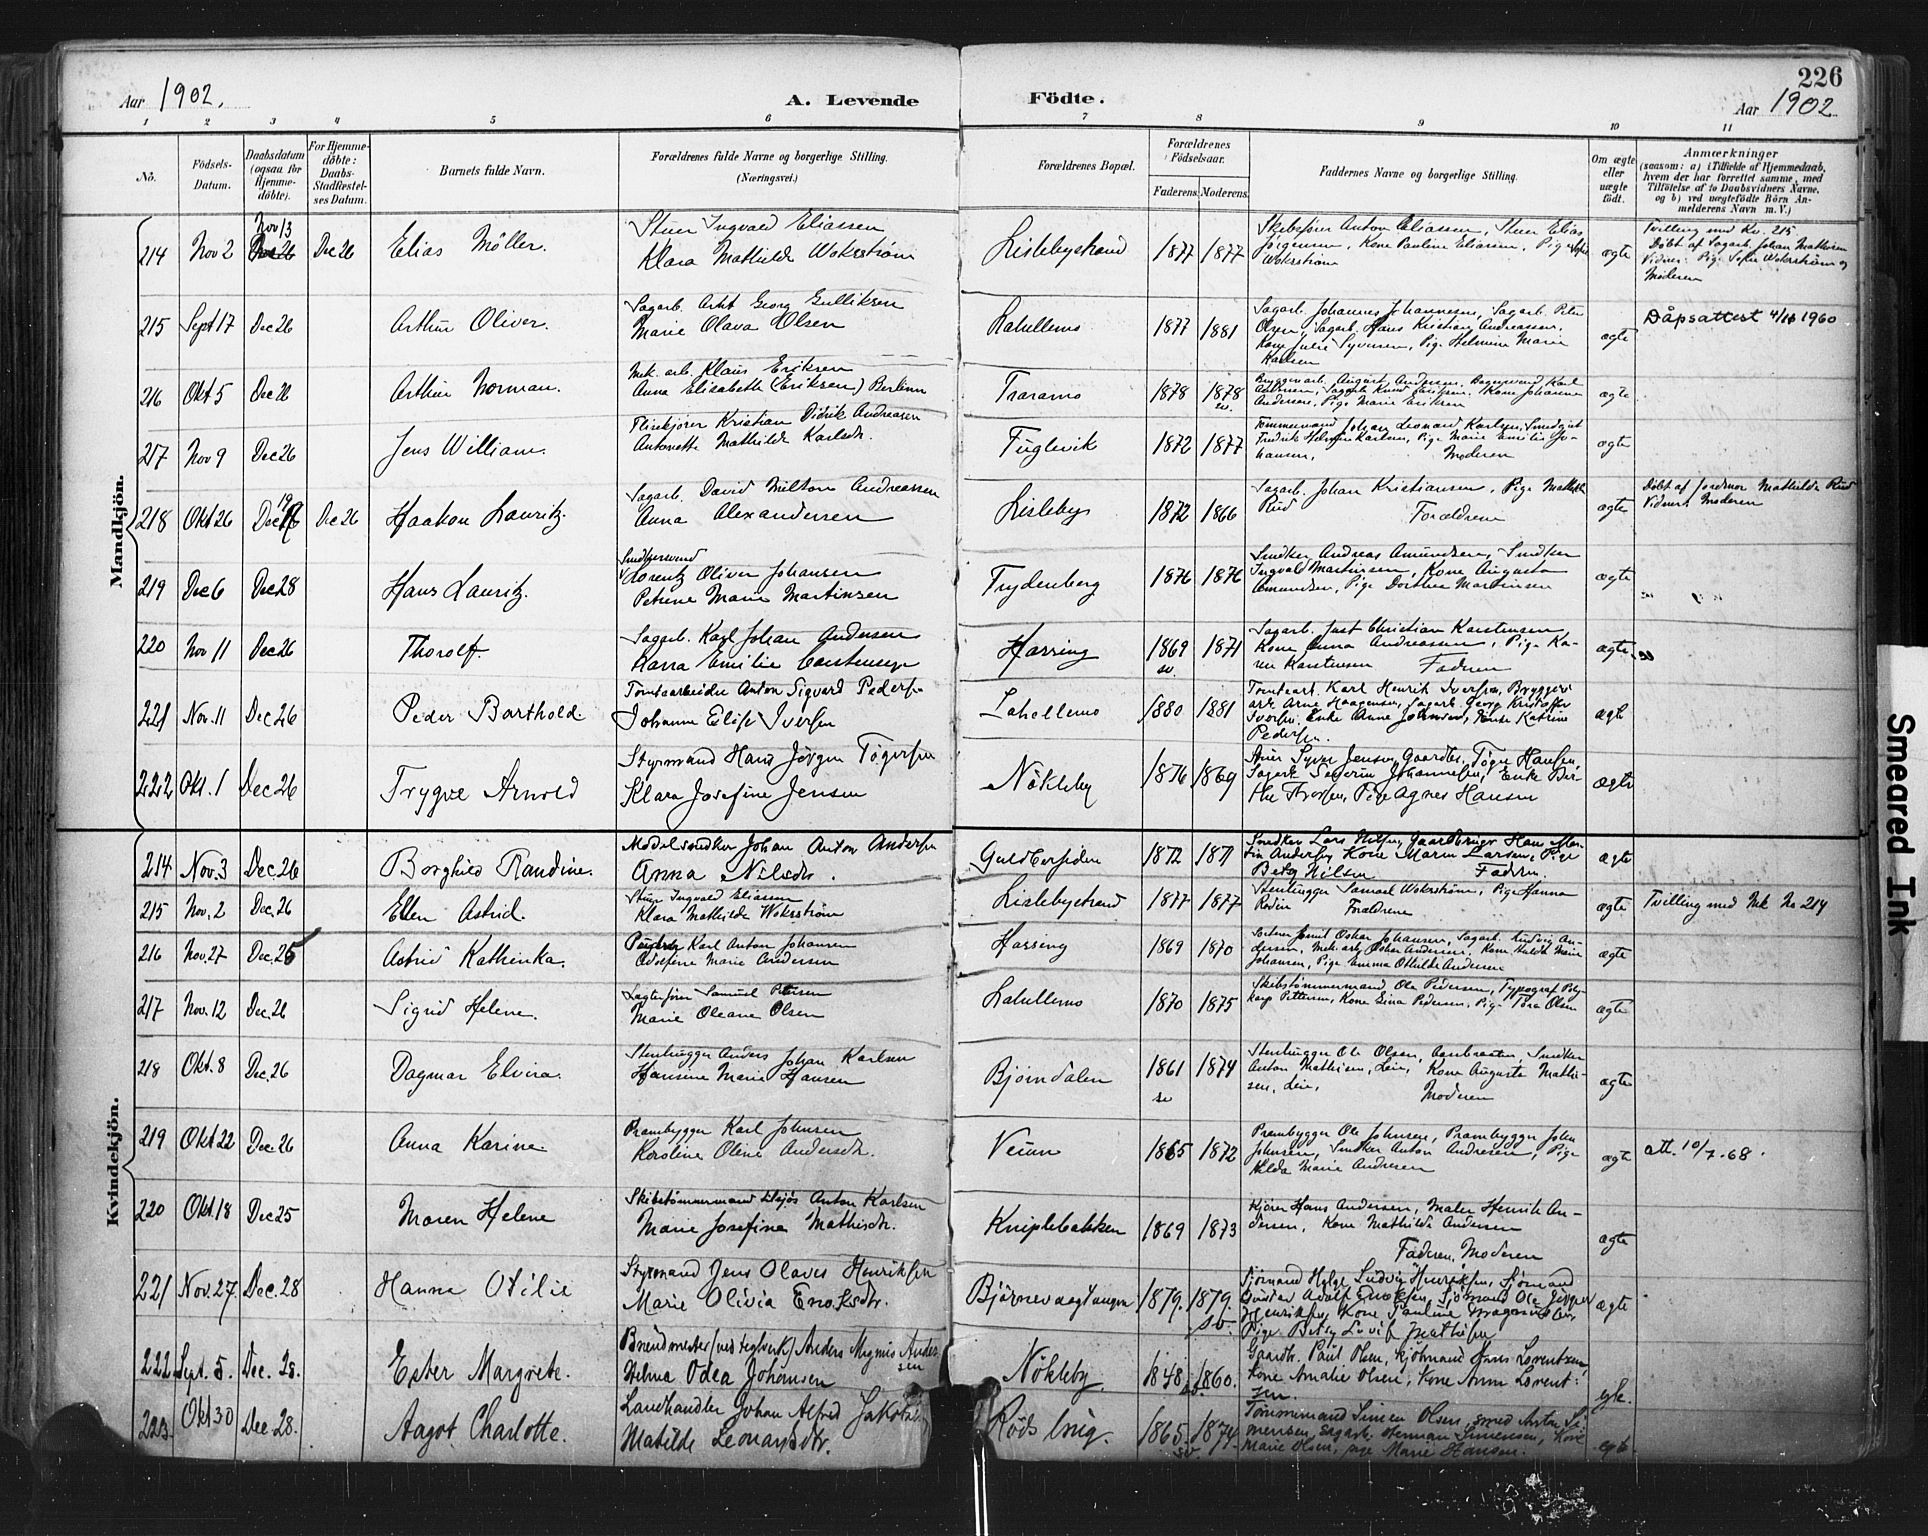 226
Aar 1902.
A. Levende Födte.
Aar 1902
1 2 3 4 5 6 7 8 9 10 11
No.
Födsels-Datum.
Daabsdatum (ogsaa for Hjemme-døbte).
For Hjemme-døbte: Daabs-Stadfæstel-ses Datum.
Barnets fulde Navn.
Forældrenes fulde Navne og borgerlige Stilling.
(Næringsvei.)
Forældrenes Bopæl.
Forældrenes Födselsaar.
Faderens. Moderens.
Faddernes Navne og borgerlige Stilling.
Om ægte eller uægte født.
Anmærkninger
(saasom: a) i Tilfælde af Hjemmedaab, hvem der har forrettet samme, med Tilföielse af to Daabsvidners Navne, og b) ved uægtefödte Börn Anmelderens Navn m. V.)
Mandkjön.
214 Nov 2 Nov 13 Dec 26 Elias Möller. Stuer Ingvald Eliassen
Klara Mathilde Wokrström Lislebystrand 1877 1877 Skibsfører Anton Eliassen, Stuer Elias Jørgensen, Kone Pauline Eliassen, Pige Sofie Wokrström ægte Tvilling med Kv. 215
Döbt af Sagarb. Johan Mathisen
Vidner: Pige Sofie Wokrström og Moderen
215 Sept 17 Dec 26 Arthur Oliver. Sagarb. Georg Gulliksen
Marie Olava Olsen Lahellemo 1877 1881 Sagarb. Johannes Johannesen, Sagarb. Peter Olsen, Sagarb. Hans Kristian Andreassen, Kone Julie Syversen, Pige Helmine Marie Karlsen ægte Dåpsattest 1960
216 Okt 5 Dec 26 Arthur Norman. Mek. arb. Klaus Eriksen
Anna Elisabeth (Eriksen) Traramo 1878 1878 sv. Bryggeriarb. August Andersen, Karl Kone Johanne Andersen, Pige Marie Eriksen ægte
217 Nov 9 Dec 26 Jens William. Kristian Didrik Andreasen
Antonette Mathilde Karlsdr. Fuglevik 1872 1877 Tømmermand Johan Leonard Karlsen, Fredrik Karlsen, Pige Marie Emilie Johansen, Moderen ægte
218 Okt 26 Dec 26 Haakon Lauritz. Sagarb. David Milton Andreassen
Anna Alexandersen Lisleby 1872 1866 Sagarb. Johan Kristiansen, Pige Mathilde Rud Forældrene ægte Döbt af Jordmor Mathilde Rud
Vidner: Moderen
219 Dec 6 Dec 28 Hans Lauritz. Snedkersvend
Lorentz Oliver Johansen
Petrine Marie Martinsen Frydenberg 1876 1876 Snedker Andreas Amundsen, Snedker Ingvald Martinsen, Kone Augusta Amundsen, Pige Dorthea Martinsen ægte
220 Nov 11 Dec 26 Thorolf. Sagarb. Karl Johan Andersen
Emilie Carstensen Hassing 1869 sv. 1871 Sagarb. Just Christian Karstensen, Kone Anna Andreassen, Pige Karen Karstensen Faderen ægte
221 Nov. 11 Dec 26 Peder Barthold Tomtearbeider Anton Sigvard Pedersen
Johanne Elise Iversen Lahellemo 1880 1881 Tomtearb. Karl Henrik Iversen, Bryggeriarb. Arne Haagensen, Sagarb. Georg Kristoffer Iversen, Enke Anne Johnsen, Enke Katrine Pedersen. ægte
222 Okt. 1 Dec 26 Trygve Arnold Styrmand Hans Jörgen Tögersen
Klara Josefine Jensen Nökleby 1876 1869 Stuer Syver Jensen, Gaardbr. Töger Hansen, Sagarb. Severin Johannesen, Enke Berthe Thorsen, Pige Agnes Hansen ægte
Kvindekjön.
214 Nov. 3 Dec. 26 Borghild Randine. Modelsnedker Johan Anton Andersen
Anna Nilsdr. Guldbersiden 1872 1871 Snedker Lars Nilsen, Gaardbruger Hans Martin Andersen, Kone Maren Larsen, Pige Betsy Nilsen Faderen. ægte
215 Nov. 2 Dec. 26 Ellen Astrid. Stuer Ingvald Eliassen
Klara Mathilde Wokrström Lislebystrand 1877 1877 Stenhugger Samuel Wokrström, Pige Hanna Rodin Forældrene ægte Tvilling med Mk No 214
216 Nov. 27 Dec. 25 Astrid Kathinka. Karl Anton Johansen
Adolfine Marie Andersen Hassing 1869 1870 Emil Oskar Johansen, Sagarb. Ludvig Andersen, Mek. arb. Oskar Andersen, Kone Hulda Marie Johansen, Pige Emma Othilde Andersen ægte
217 Nov. 12 Dec. 26 Sigrid Helene. Samuel Petersen
Marie Oleane Olsen Lahellemo 1870 1875 Skibstömmermand Ole Pedersen, Typograf Polykarp Pettersen, Kone Eina Pedersen, Pige Tora Olsen ægte
218 Okt. 8 Dec. 26 Dagmar Elvira. Stenhugger Anders Johan Karlsen
Hansine Marie Hansen Bjørndalen 1861 sv 1874 Stenhugger Ole Olsen, Snedker Anton Mathisen, Leie, Kone Augusta Mathisen, Leie, Moderen ægte
219 Okt 22 Dec. 26 Anna Karine Prambygger Karl Johnsen
Karoline Oline Andersdr. Veum 1865 1872 Prambygger Ole Johnsen, Prambygger John Johnsen, Snedker Anton Andresen, Pige Hilda Marie Andresen ægte att. 10/7.68.
220 Okt. 18 Dec 25 Maren Helene Skibstömmermand Anton Karlsen
Marie Josefine Mathisdr. Kniplebakken 1869 1873 Kjörer Hans Andersen, Maler Henrik Andersen, Kone Mathilde Andersen
Faderen, Moderen ægte
221 Nov. 27 Dec. 28 Hanna Otilie Styrmand Jens Olaves Henriksen
Marie Olivia Enoksdr. Björnevaagtangen 1879. 1879. sv. Sjömand Helge Ludvig Henriksen, Sjömand Gustav Adolf Enoksen, Sjömand Ole Henriksen, Kone Pauline Pige Betsy Lovise Mathisen ægte
222 Sept. 5. Dec. 28. Ester Margrete. Brændmester (ved teglverk) Anders Magnus Andersen
Helma Odea Johansen Nökleby. 1848. sv. 1860. Gaardbr. Paul Olsen, Kjøbmand Hans Lorentzen, Kone Amalie Olsen, Kone Anna Lorentzen. egte.
223. Okt 30 Dec 28. Aagot Charlotte. Landhandler Johan Alfred Jakobsen
Matilde Leonardsdr. Röds brug. 1865. sv. 1874. Tømmermand Simen Olsen, smed Anton Simensen, sagarb. Herman Simensen, Kone Marie Olsen, pige Marie Hansen. egte
Smeared Ink